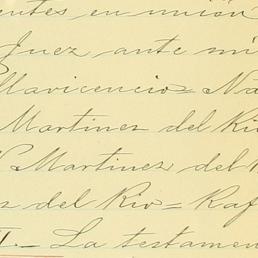 entes en union
Juez ante mi
Mavicencio = Na
Martinez del Rio
N Martinez del R
z del Rio = Raf
I. - La testamen